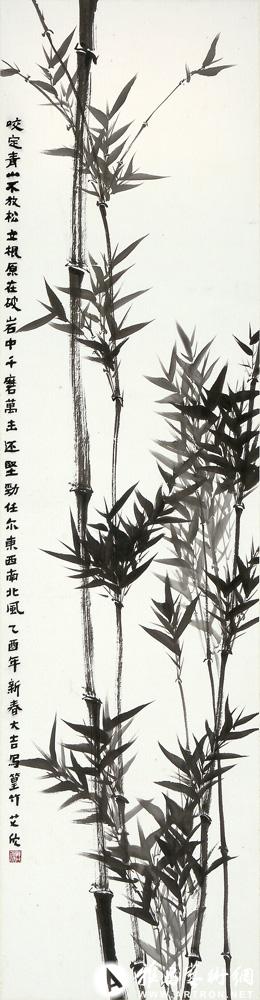 咬定青山不放松立根原在破岩中千磨萬击还坚劲任尔東西南北風乙酉年新春大吉写篁竹艾欣
雅昌艺術網
WWW.ARTRON.NET